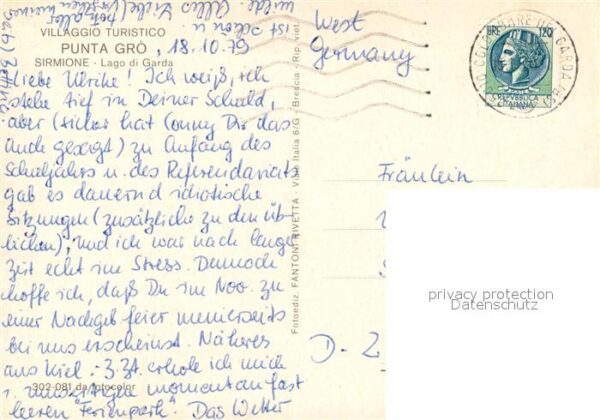 VILLAGGIO TURISTICO
PUNTA GRÒ, 18.10.79
SIRMIONE - Lago di Garda
Liebe Ulrike! Ich weiß, ich
stehe tief in Deiner Schuld,
aber (sicher hat Conny Dir das
auch gesagt) zu Anfang des
Schuljahrs u. des Referendariats
gab es dauernd idiotische
Sitzungen (zusätzliche zu den üb-
lichen), und ich war nach lange
Zeit echt im Stress. Dennoch
hoffe ich, daß Du im Nov. zu
einer Nachgeb.feier meinerseits
bei uns erscheinst. Näheres
aus Kiel. - Z.Zt. erhole ich mich
i. momentan fast
leeren "Ferienpark". Das Wetter
ist schön u.
302-081 da fotocolor
Fotoediz. FANTONI RIVETTA - Viale Italia 6/G - Brescia - Rip. viet.
West
Germany
BRE 120
REPVBBLICA
ITALIANA
Fräulein
D-2
privacy protection
Datenschutz